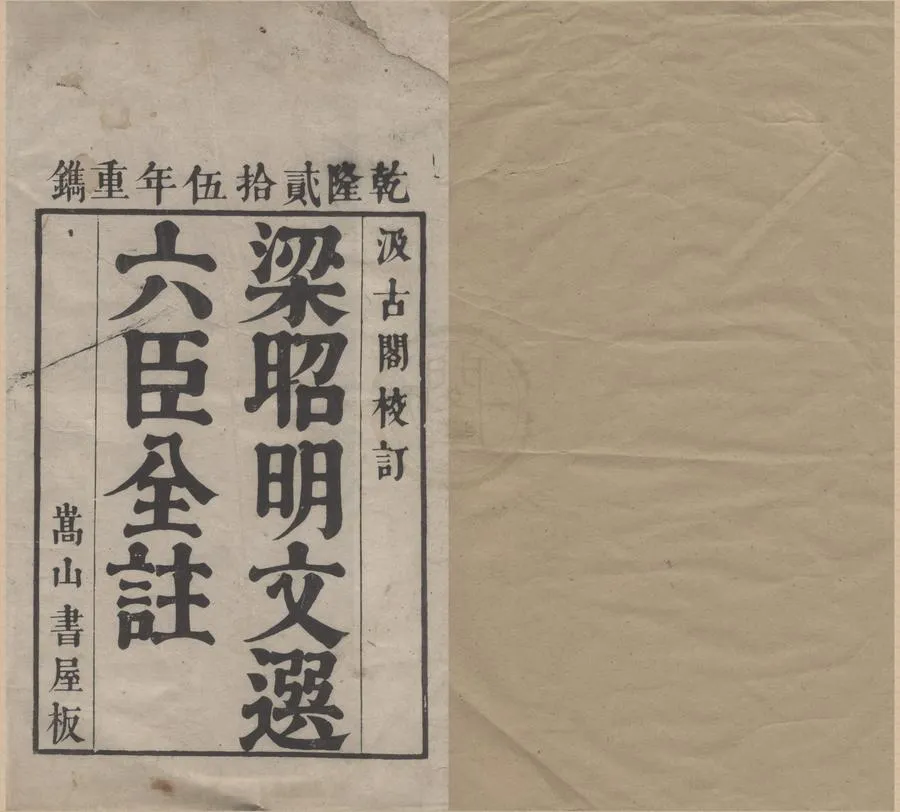 乾隆貳拾伍年重鐫
汲古閣校訂
梁昭明文選
六臣全註
嵩山書屋板